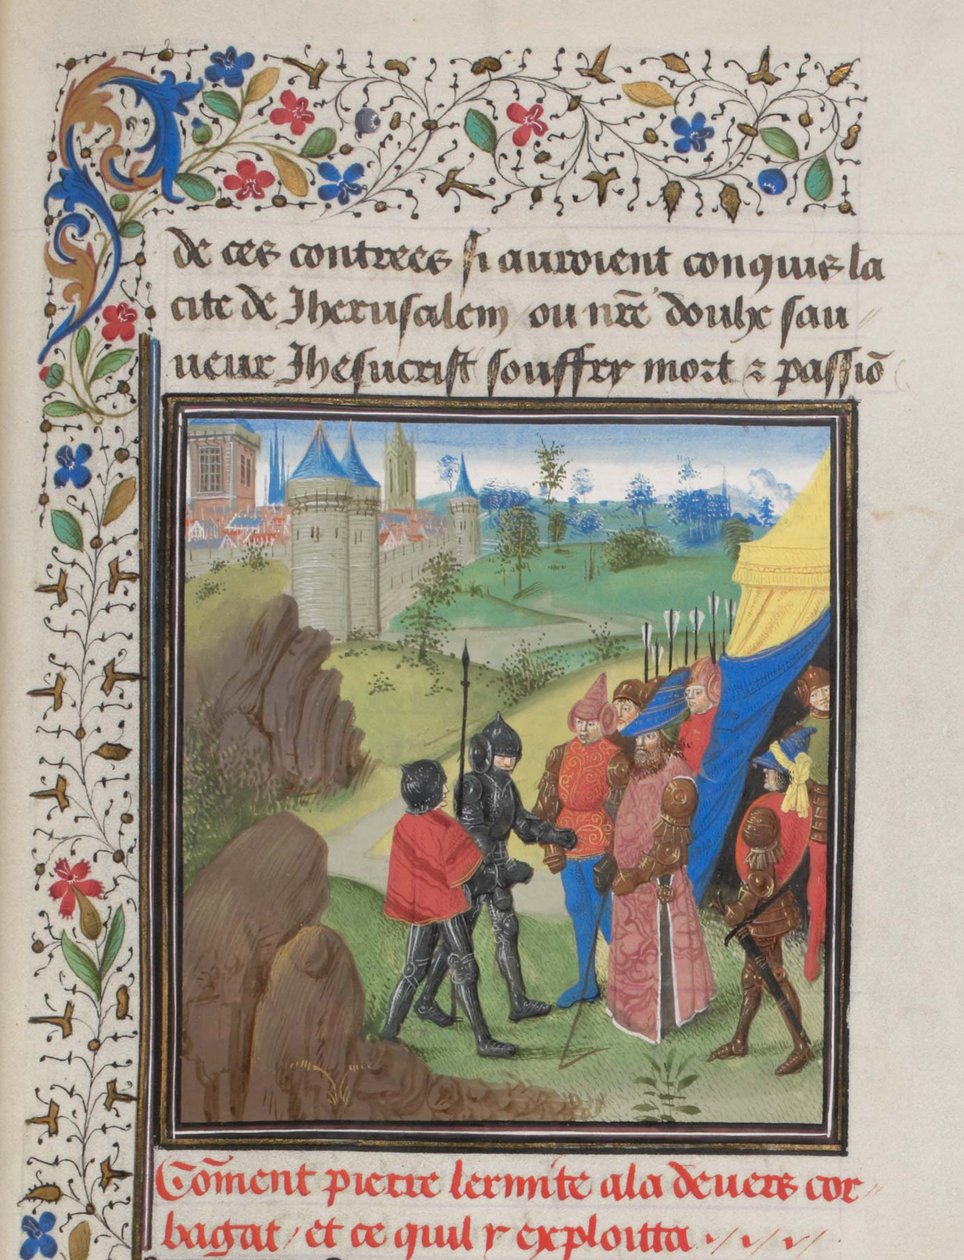 de ces contrees si auroient conquis la
cite de Jherusalem ou nr̄e douhc sau
ueur Jhesucrist souffry mort ⁊ passiō
Cōment pierre lermite ala deuers cor
bagat / et ce quil y exploitta .